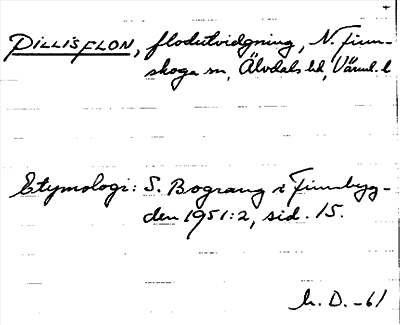 PILLISFLON, flodutvidgning, N. Finn-
skoga sn, Älvdals hd, Värml. l
Etymologi: S. Bograng i Finnbyg-
den 1951:2, sid. 15.
h. D. -61